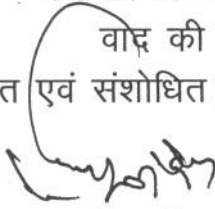 वाद की
त एवं संशोधित